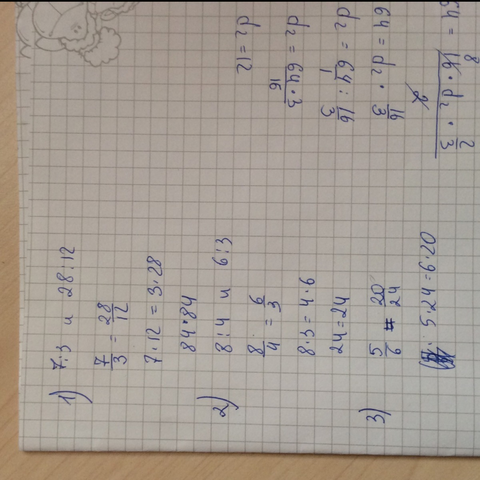 1) 7:3 и 28:12
7/3 = 28/12
7·12 = 3·28
84=84
2) 8:4 и 6:3
8/4 = 6/3
8·3 = 4·6
24 = 24
3) 5/6 = 20/24
5·24 = 6·20
64 = 16·d₂·2/3
8
2
64 = d₂ · 16/3
d₂ = 64/1 : 16/3
d₂ = 64·3/16
d₂ = 12